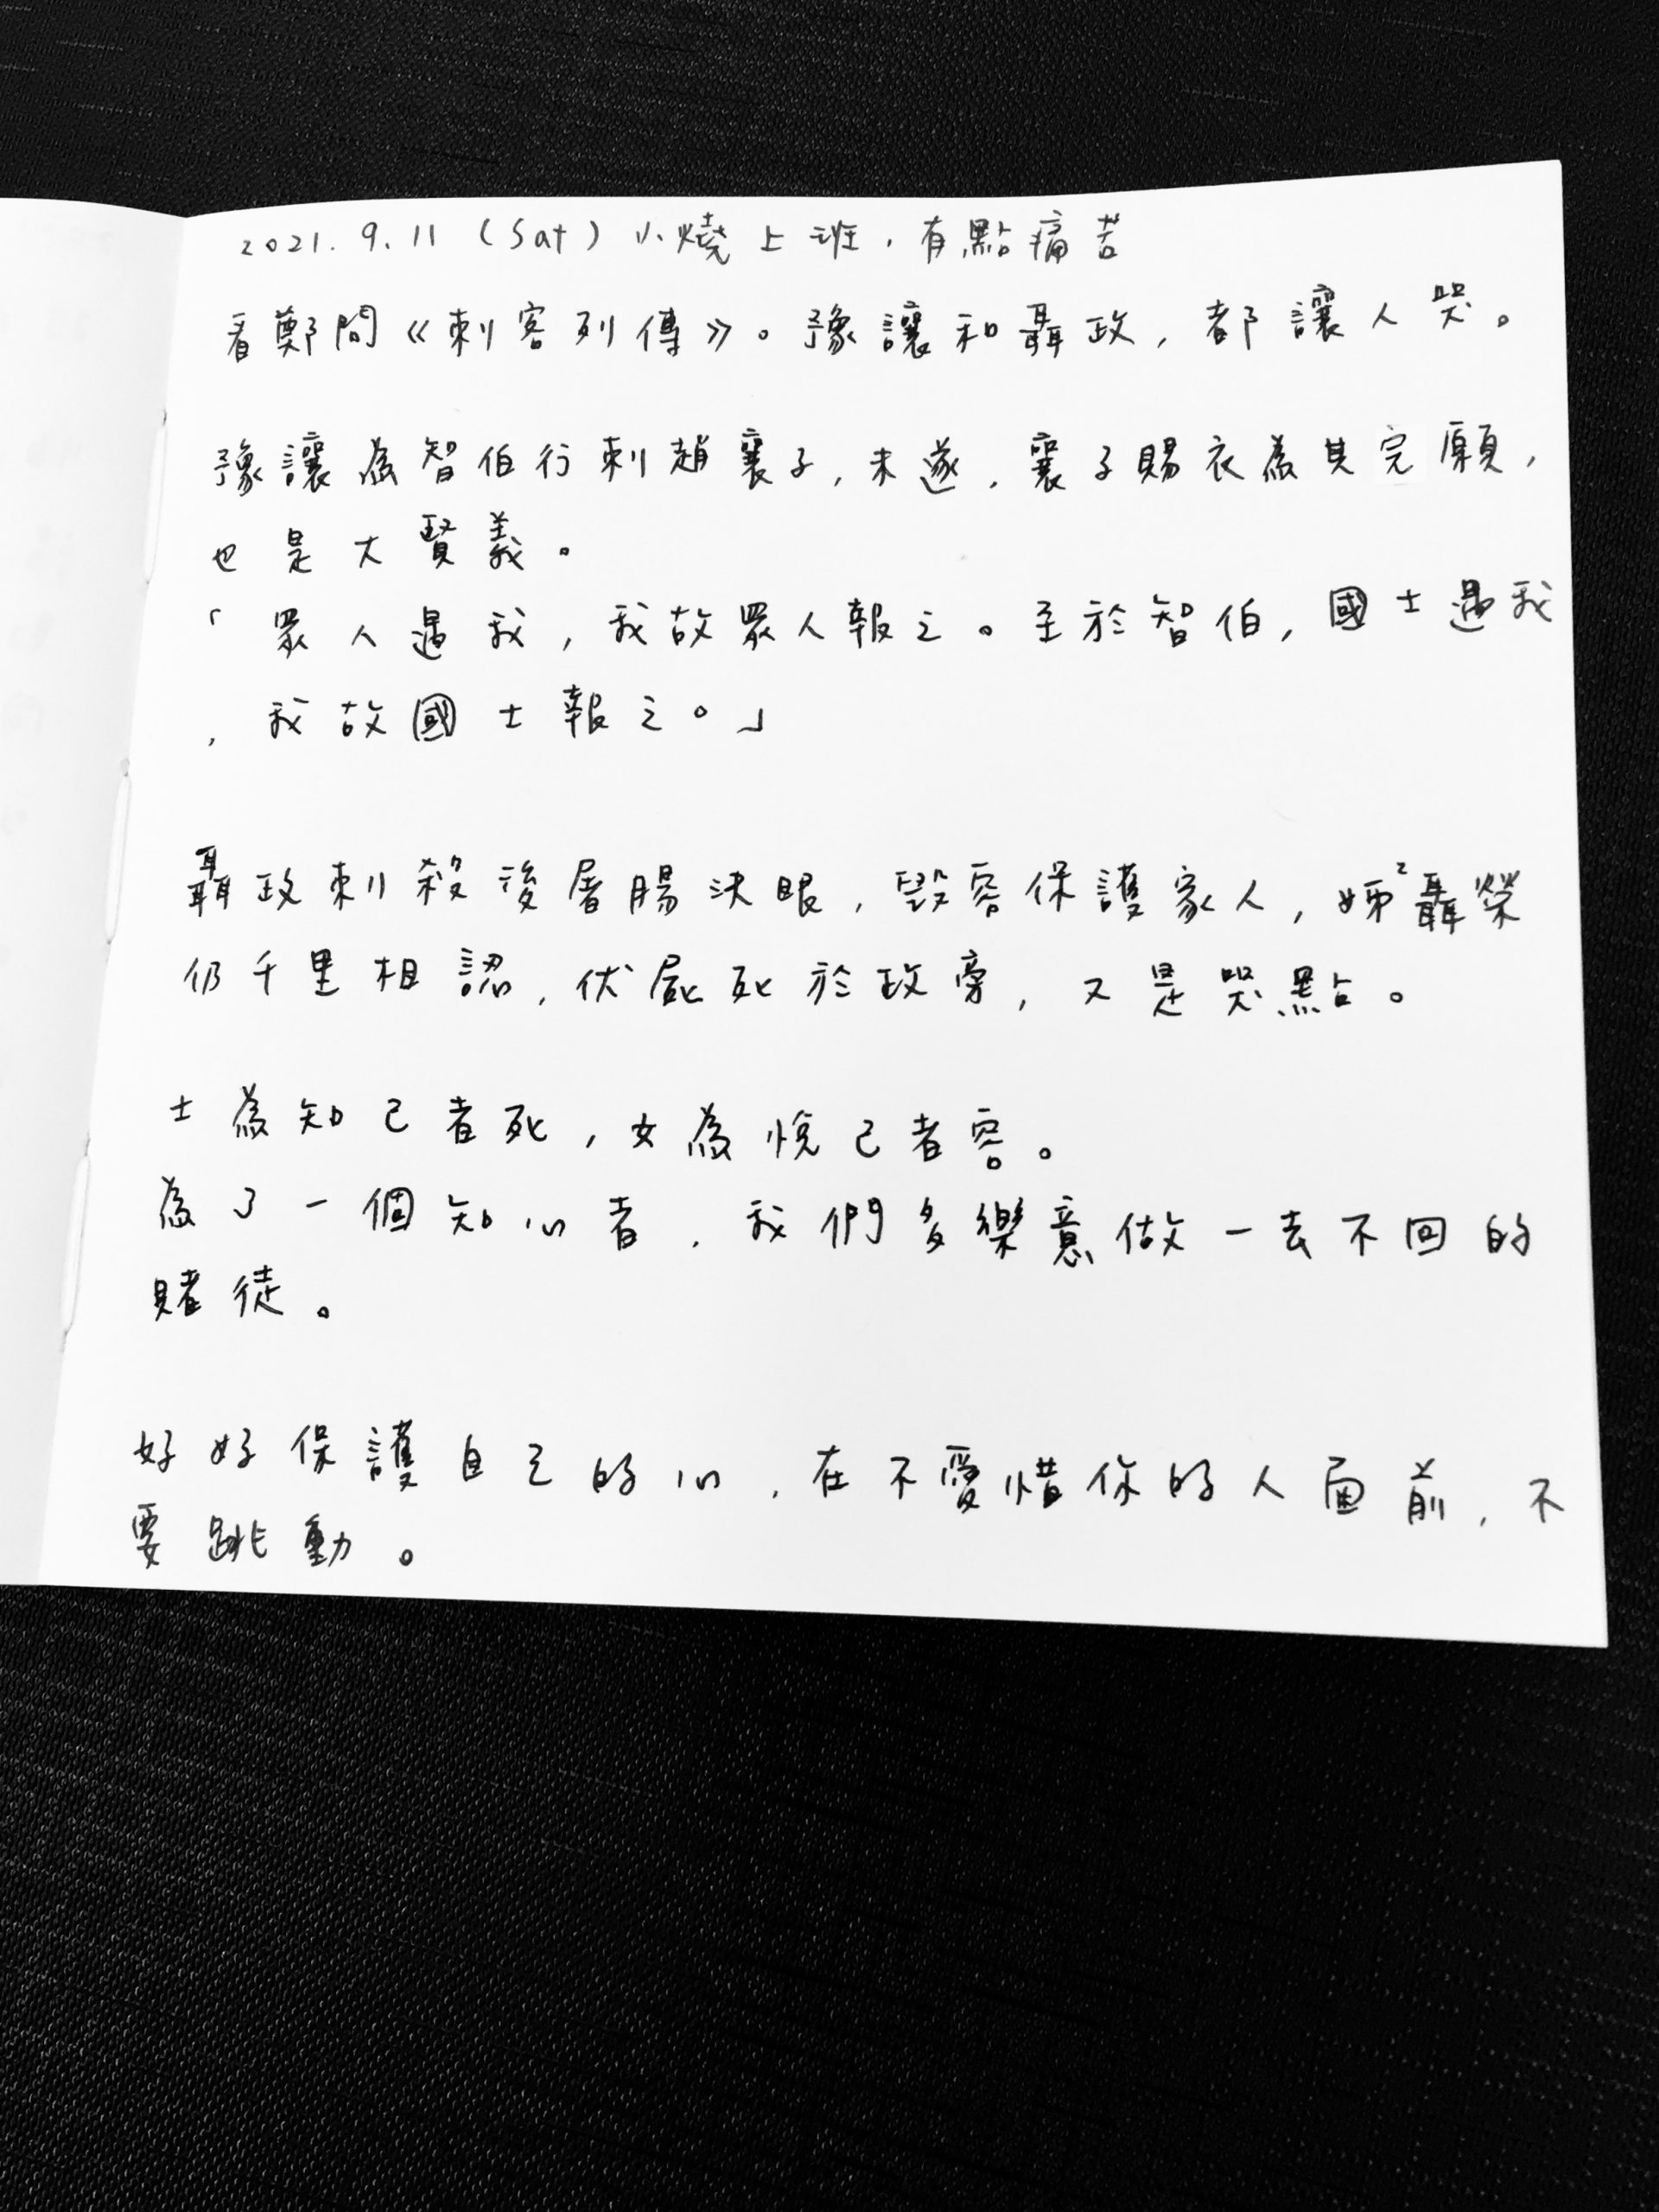 2021.9.11 (Sat) 小燒上班，有點痛苦
看鄭問《刺客列傳》。豫讓和聶政，都讓人哭。
豫讓為智伯行刺趙襄子，未遂，襄子賜衣為其完願，
也是大賢義。
「眾人遇我，我故眾人報之。至於智伯，國士遇我
，我故國士報之。」
聶政刺殺後屠腸決眼，毀容保護家人，姊²聶榮
仍千里相認，伏屍死於政旁，又是哭點。
士為知己者死，女為悅己者容。
為了一個知心者，我們多樂意做一去不回的
賭徒。
好好保護自己的心，在不愛惜你的人面前，不
要跳動。